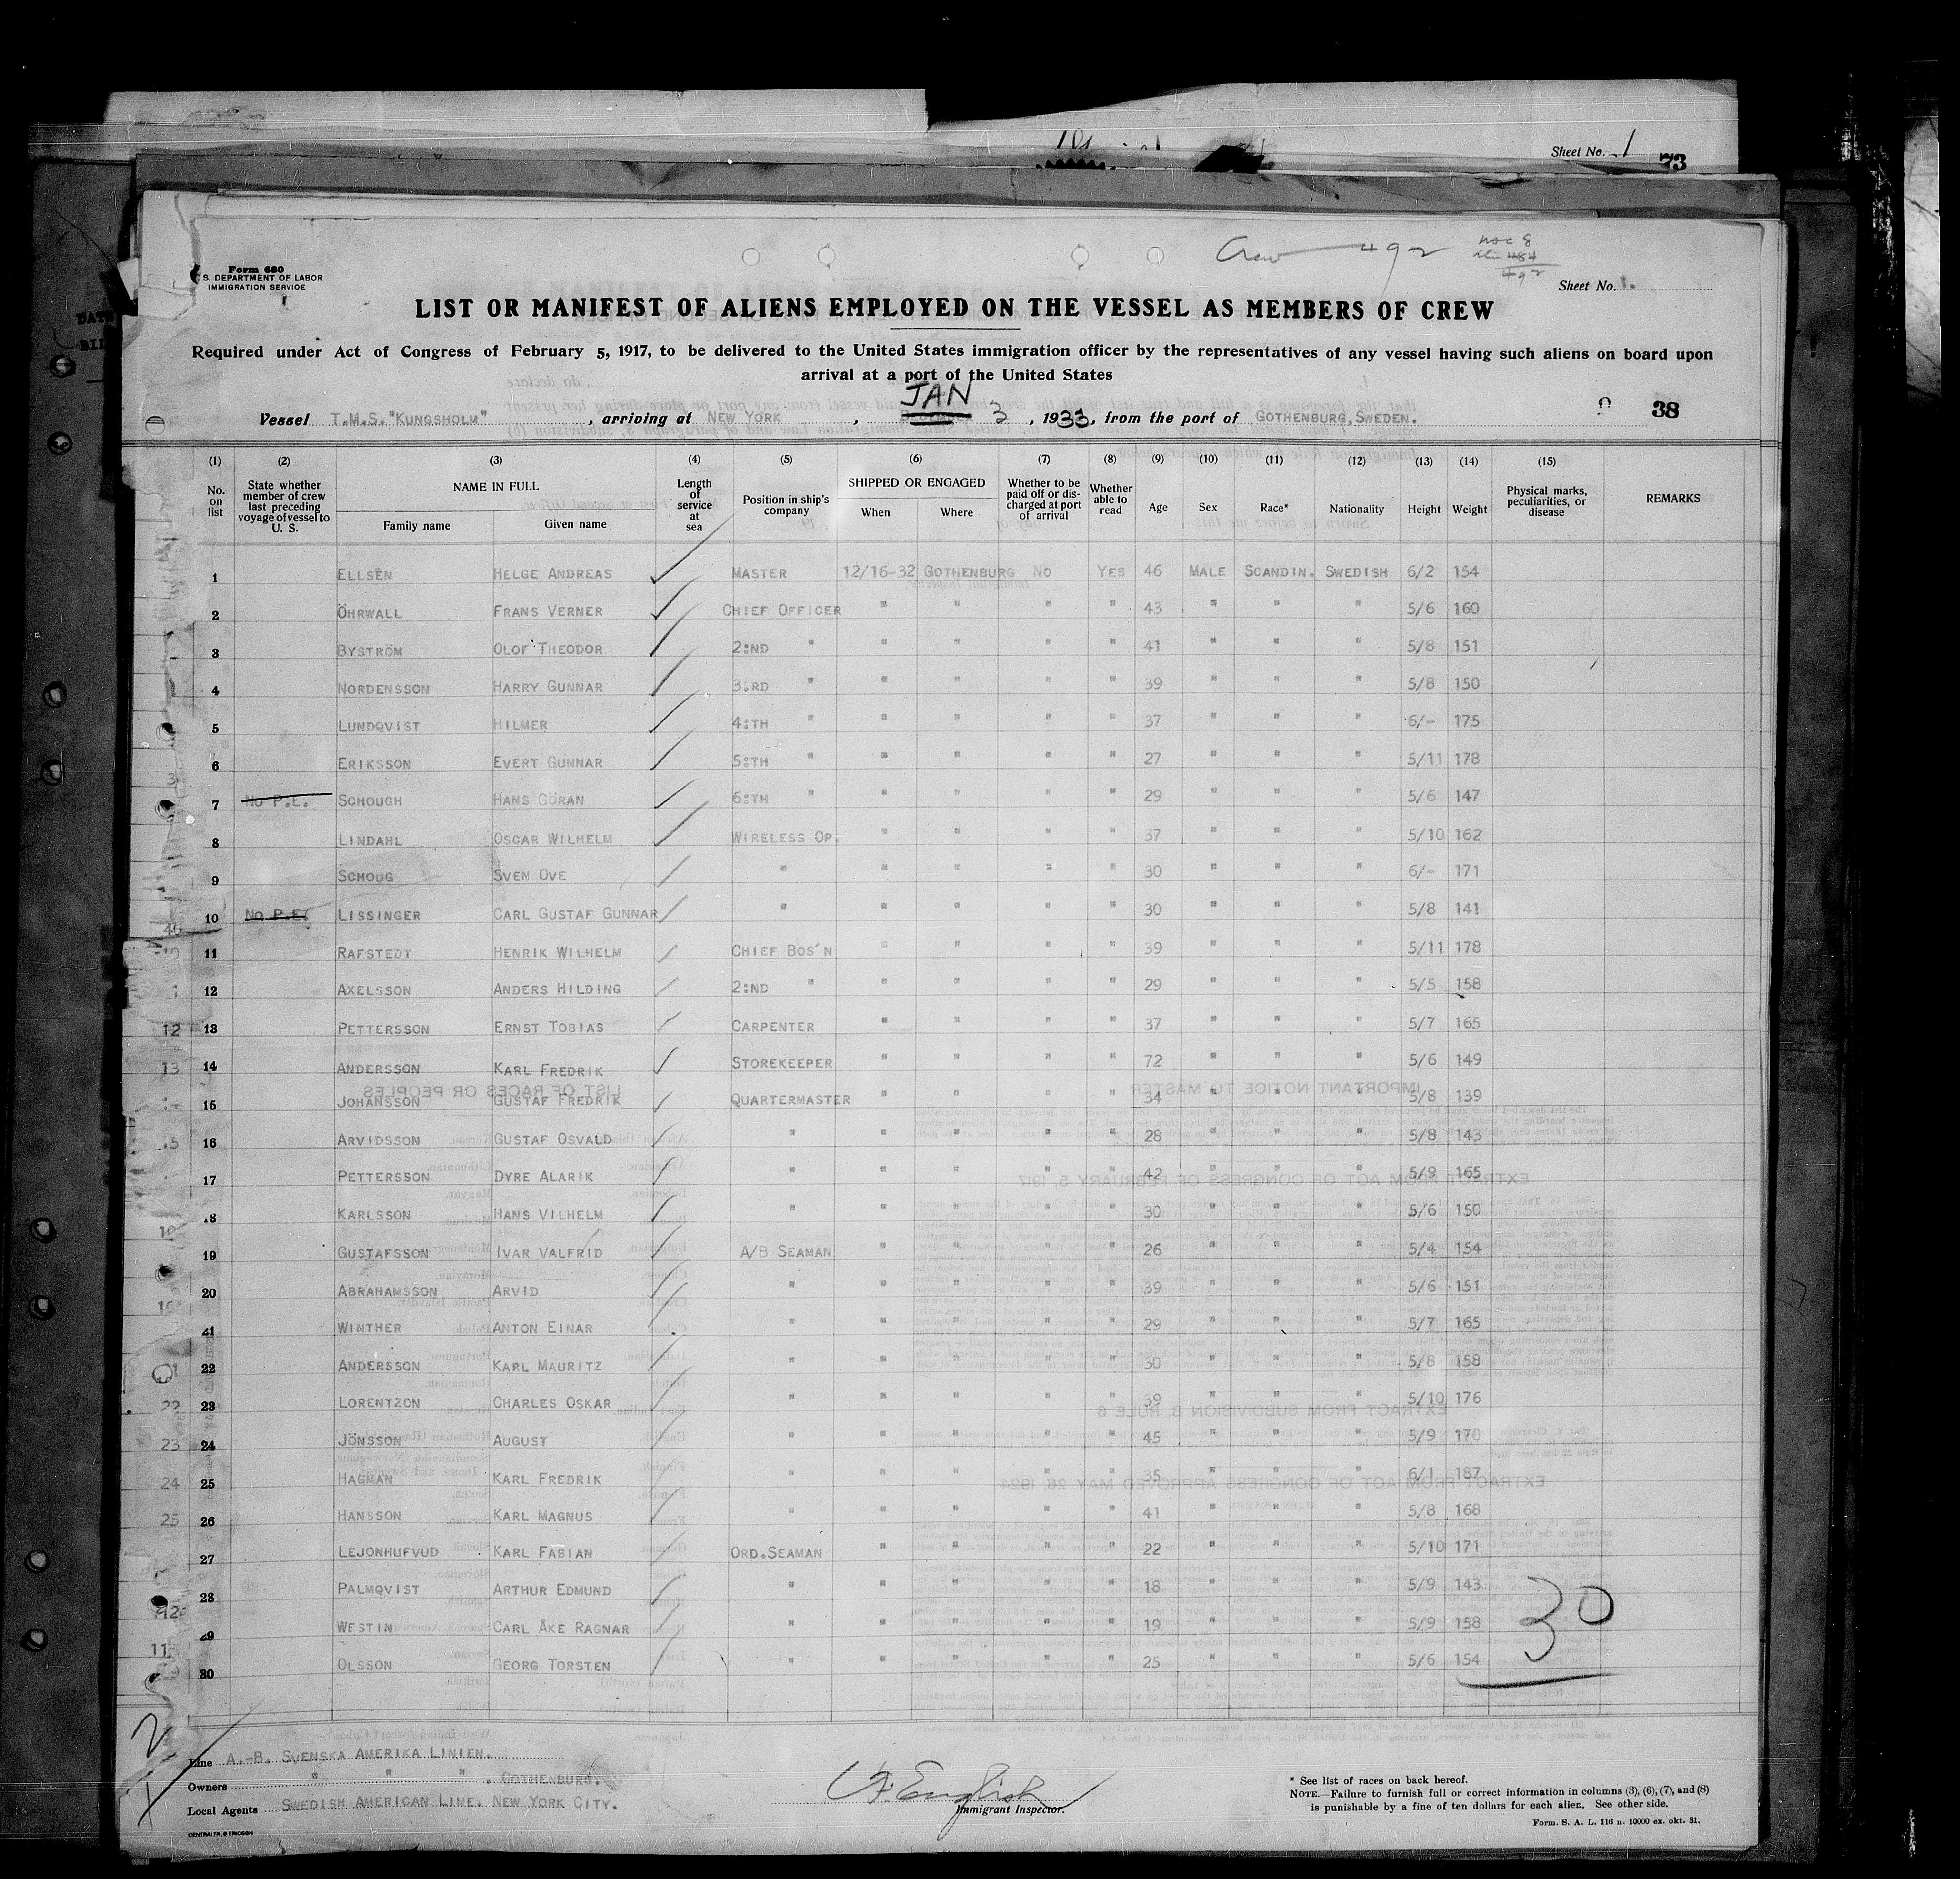 Sheet No. 1
73
Crew 492
484
492
Form 680
S. DEPARTMENT OF LABOR
IMMIGRATION SERVICE
Sheet No. 1.
LIST OR MANIFEST OF ALIENS EMPLOYED ON THE VESSEL AS MEMBERS OF CREW
Required under Act of Congress of February 5, 1917, to be delivered to the United States immigration officer by the representatives of any vessel having such aliens on board upon
arrival at a port of the United States
JAN
Vessel T.M.S."KUNGSHOLM", arriving at NEW YORK, 3, 1933, from the port of GOTHENBURG, SWEDEN. 38
(1) (2) (3) (4) (5) (6) (7) (8) (9) (10) (11) (12) (13) (14) (15)
No. on list State whether member of crew last preceding voyage of vessel to U. S. NAME IN FULL Family name Given name Length of service at sea Position in ship's company SHIPPED OR ENGAGED When Where Whether to be paid off or discharged at port of arrival Whether able to read Age Sex Race* Nationality Height Weight Physical marks, peculiarities, or disease REMARKS
1 ELLSÉN HELGE ANDREAS MASTER 12/16-32 GOTHENBURG NO YES 46 MALE SCANDIN. SWEDISH 6/2 154
2 ÖHRWALL FRANS VERNER CHIEF OFFICER " " " " 43 " " " 5/6 160
3 BYSTRÖM OLOF THEODOR 2:ND " " " " " 41 " " " 5/8 151
4 NORDENSSON HARRY GUNNAR 3:RD " " " " " 39 " " " 5/8 150
5 LUNDQVIST HILMER 4:TH " " " " " 37 " " " 6/- 175
6 ERIKSSON EVERT GUNNAR 5:TH " " " " " 27 " " " 5/11 178
7 No P.E. SCHOUGH HANS GÖRAN 6:TH " " " " " 29 " " " 5/6 147
8 LINDAHL OSCAR WILHELM WIRELESS OP. " " " " 37 " " " 5/10 162
9 SCHOUG SVEN OVE " " " " " 30 " " " 6/- 171
10 No P.E. LISSINGER CARL GUSTAF GUNNAR " " " " " 30 " " " 5/8 141
11 RAFSTEDT HENRIK WILHELM CHIEF BOS'N " " " " 39 " " " 5/11 178
12 AXELSSON ANDERS HILDING 2:ND " " " " " 29 " " " 5/5 158
13 PETTERSSON ERNST TOBIAS CARPENTER " " " " 37 " " " 5/7 165
14 ANDERSSON KARL FREDRIK STOREKEEPER " " " " 72 " " " 5/6 149
15 JOHANSSON GUSTAF FREDRIK QUARTERMASTER " " " " 34 " " " 5/8 139
16 ARVIDSSON GUSTAF OSVALD " " " " " 28 " " " 5/8 143
17 PETTERSSON DYRE ALARIK " " " " " 42 " " " 5/9 165
18 KARLSSON HANS VILHELM " " " " " 30 " " " 5/6 150
19 GUSTAFSSON IVAR VALFRID A/B SEAMAN " " " " 26 " " " 5/4 154
20 ABRAHAMSSON ARVID " " " " " 39 " " " 5/6 151
21 WINTHER ANTON EINAR " " " " " 29 " " " 5/7 165
22 ANDERSSON KARL MAURITZ " " " " " 30 " " " 5/8 158
23 LORENTZON CHARLES OSKAR " " " " " 39 " " " 5/10 176
24 JÖNSSON AUGUST " " " " " 45 " " " 5/9 170
25 HAGMAN KARL FREDRIK " " " " " 35 " " " 6/1 187
26 HANSSON KARL MAGNUS " " " " " 41 " " " 5/8 168
27 LEJONHUFVUD KARL FABIAN ORD.SEAMAN " " " " 22 " " " 5/10 171
28 PALMQVIST ARTHUR EDMUND " " " " " 18 " " " 5/9 143
29 WESTIN CARL ÅKE RAGNAR " " " " " 19 " " " 5/9 158
30 OLSSON GEORG TORSTEN " " " " " 25 " " " 5/6 154
30
Line A.-B. SVENSKA AMERIKA LINIEN.
Owners " " " . GOTHENBURG.
Local Agents SWEDISH AMERICAN LINE. NEW YORK CITY.
English
Immigrant Inspector.
* See list of races on back hereof.
NOTE.—Failure to furnish full or correct information in columns (3), (6), (7), and (8)
is punishable by a fine of ten dollars for each alien. See other side.
Form. S. A. L. 116 n. 10000 ex. okt. 31.
CENTRALTR. G ERICSON